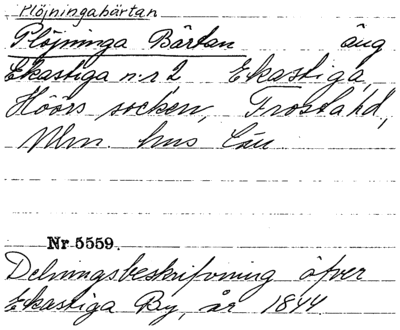 Plöjningabärtan
Plöjninga Bärtan äng
Ekastiga n:r 2 Ekastiga,
Höörs socken, Frosta hd,
Mlm. hus län.
Nr 5559.
Delningsbeskrifvning öfver
Ekastiga By, år 1844.